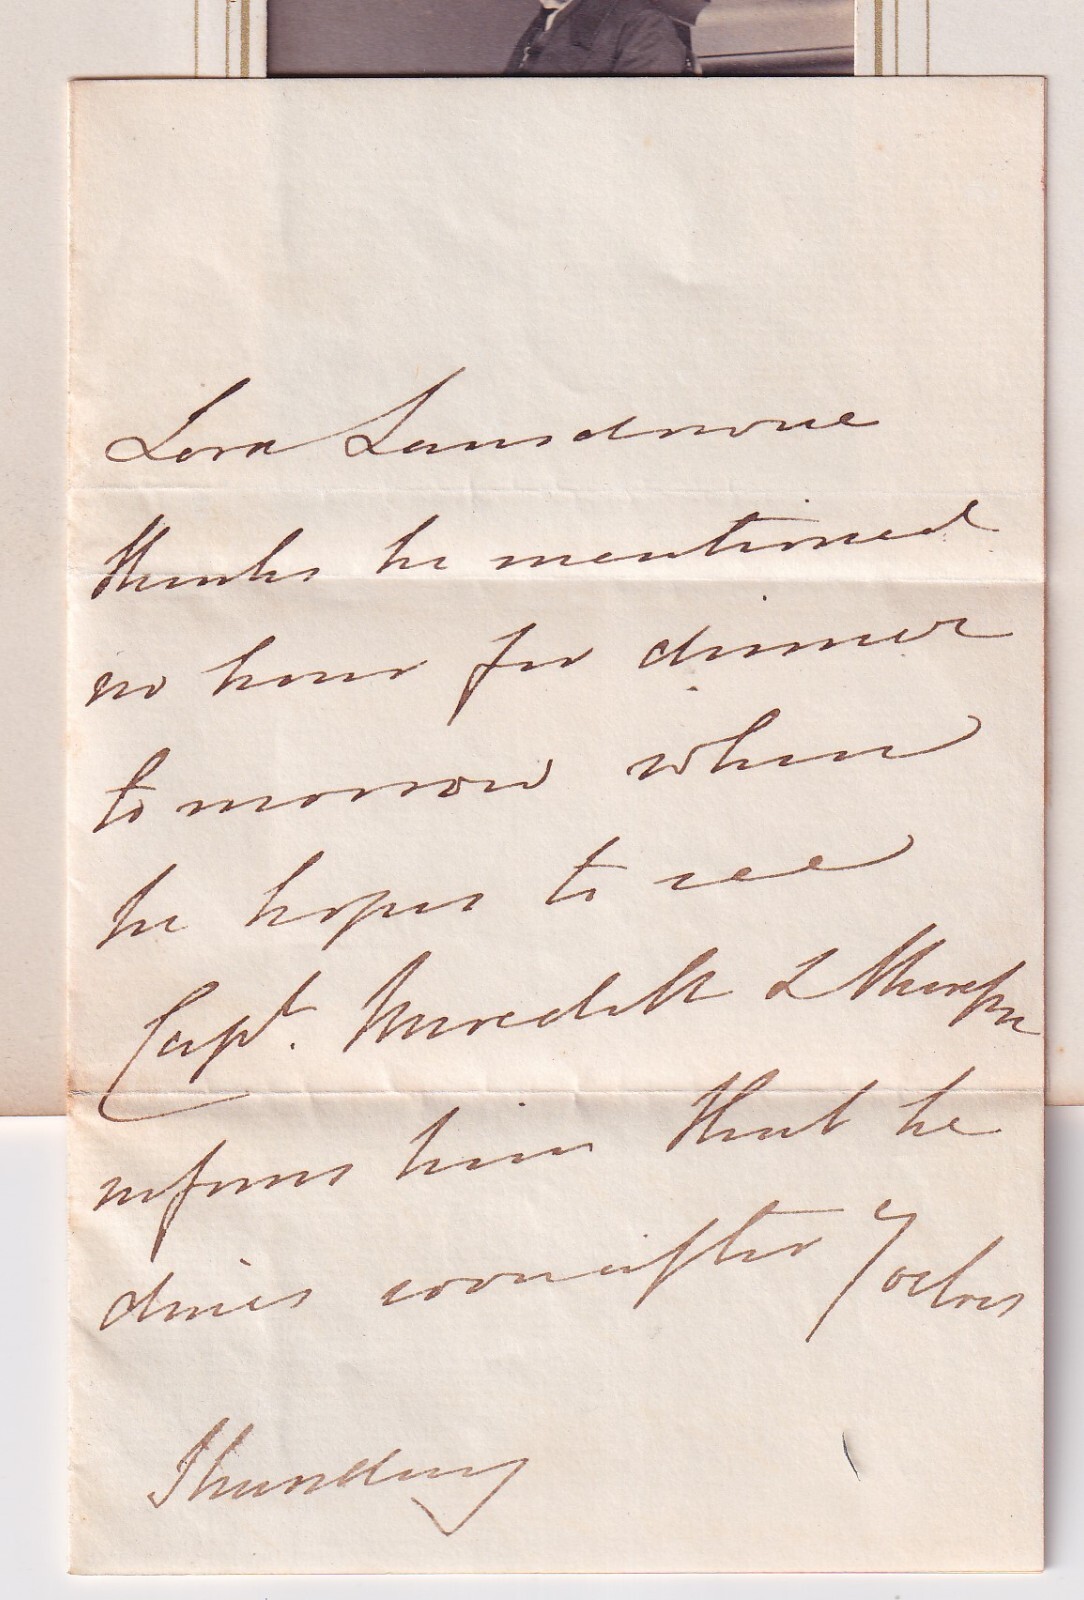 Lord Lansdowne
thinks he mentioned
no hour for dinner
tomorrow when
he hopes to see
Capt. Meredith & therefore
informs him that he
dines soon after 7 oclock
Thursday